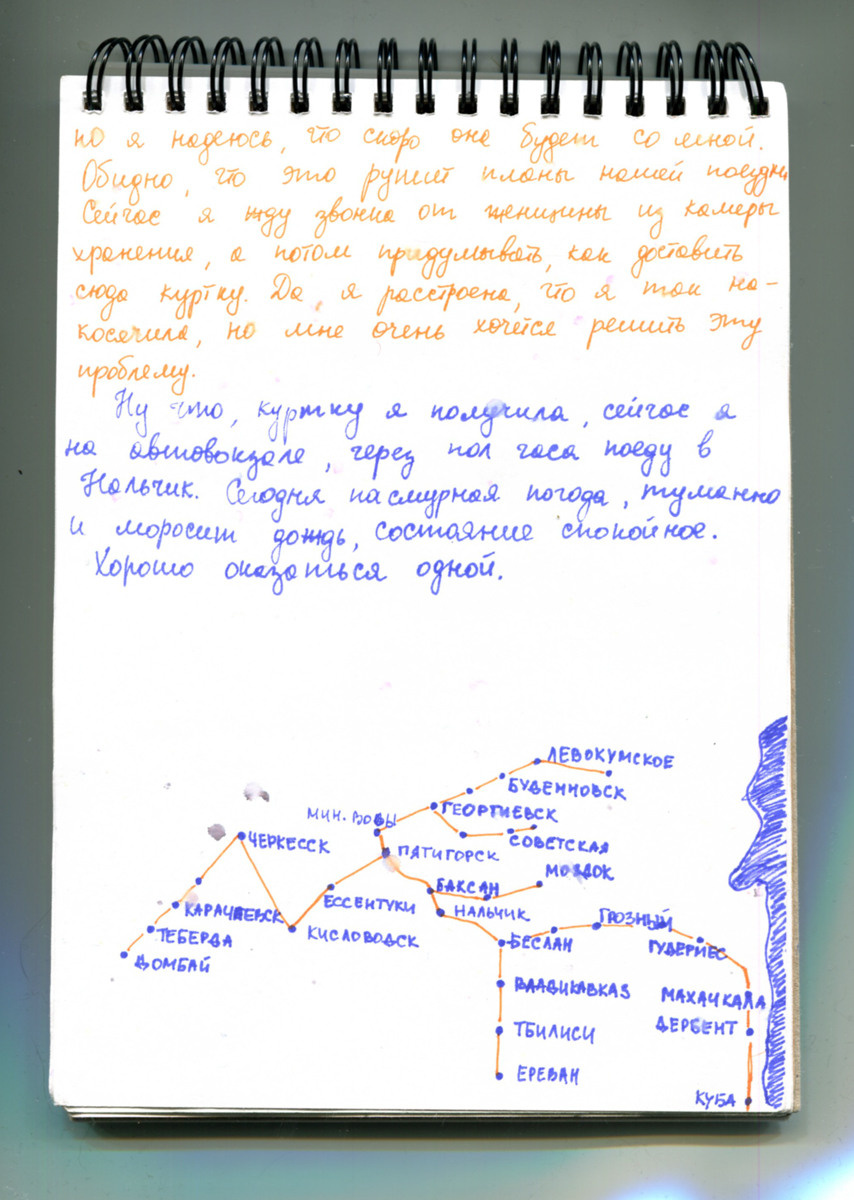 но я надеюсь, что скоро она будет со мной.
Обидно, что это рушит планы нашей поездки
Сейчас я жду звонка от женщины из камеры
хранения, а потом придумывать, как доставить
сюда куртку. Да я расстроена, что я так на-
косячила, но мне очень хочется решить эту
проблему.
Ну что, куртку я получила, сейчас я
на автовокзале, через пол часа поеду в
Нальчик. Сегодня пасмурная погода, туманно
и моросит дождь, состояние спокойное.
Хорошо оказаться одной.
ЛЕВОКУМСКОЕ
БУДЕННОВСК
МИН. ВОДЫ
ГЕОРГИЕВСК
ЧЕРКЕССК
СОВЕТСКАЯ
ПЯТИГОРСК
МОЗДОК
БАКСАН
ЕССЕНТУКИ
КАРАЧАЕВСК
НАЛЬЧИК
ГРОЗНЫЙ
ТЕБЕРДА
КИСЛОВОДСК
БЕСЛАН
ГУДЕРМЕС
ДОМБАЙ
ВЛАДИКАВКАЗ
МАХАЧКАЛА
ТБИЛИСИ
ДЕРБЕНТ
ЕРЕВАН
КУБА